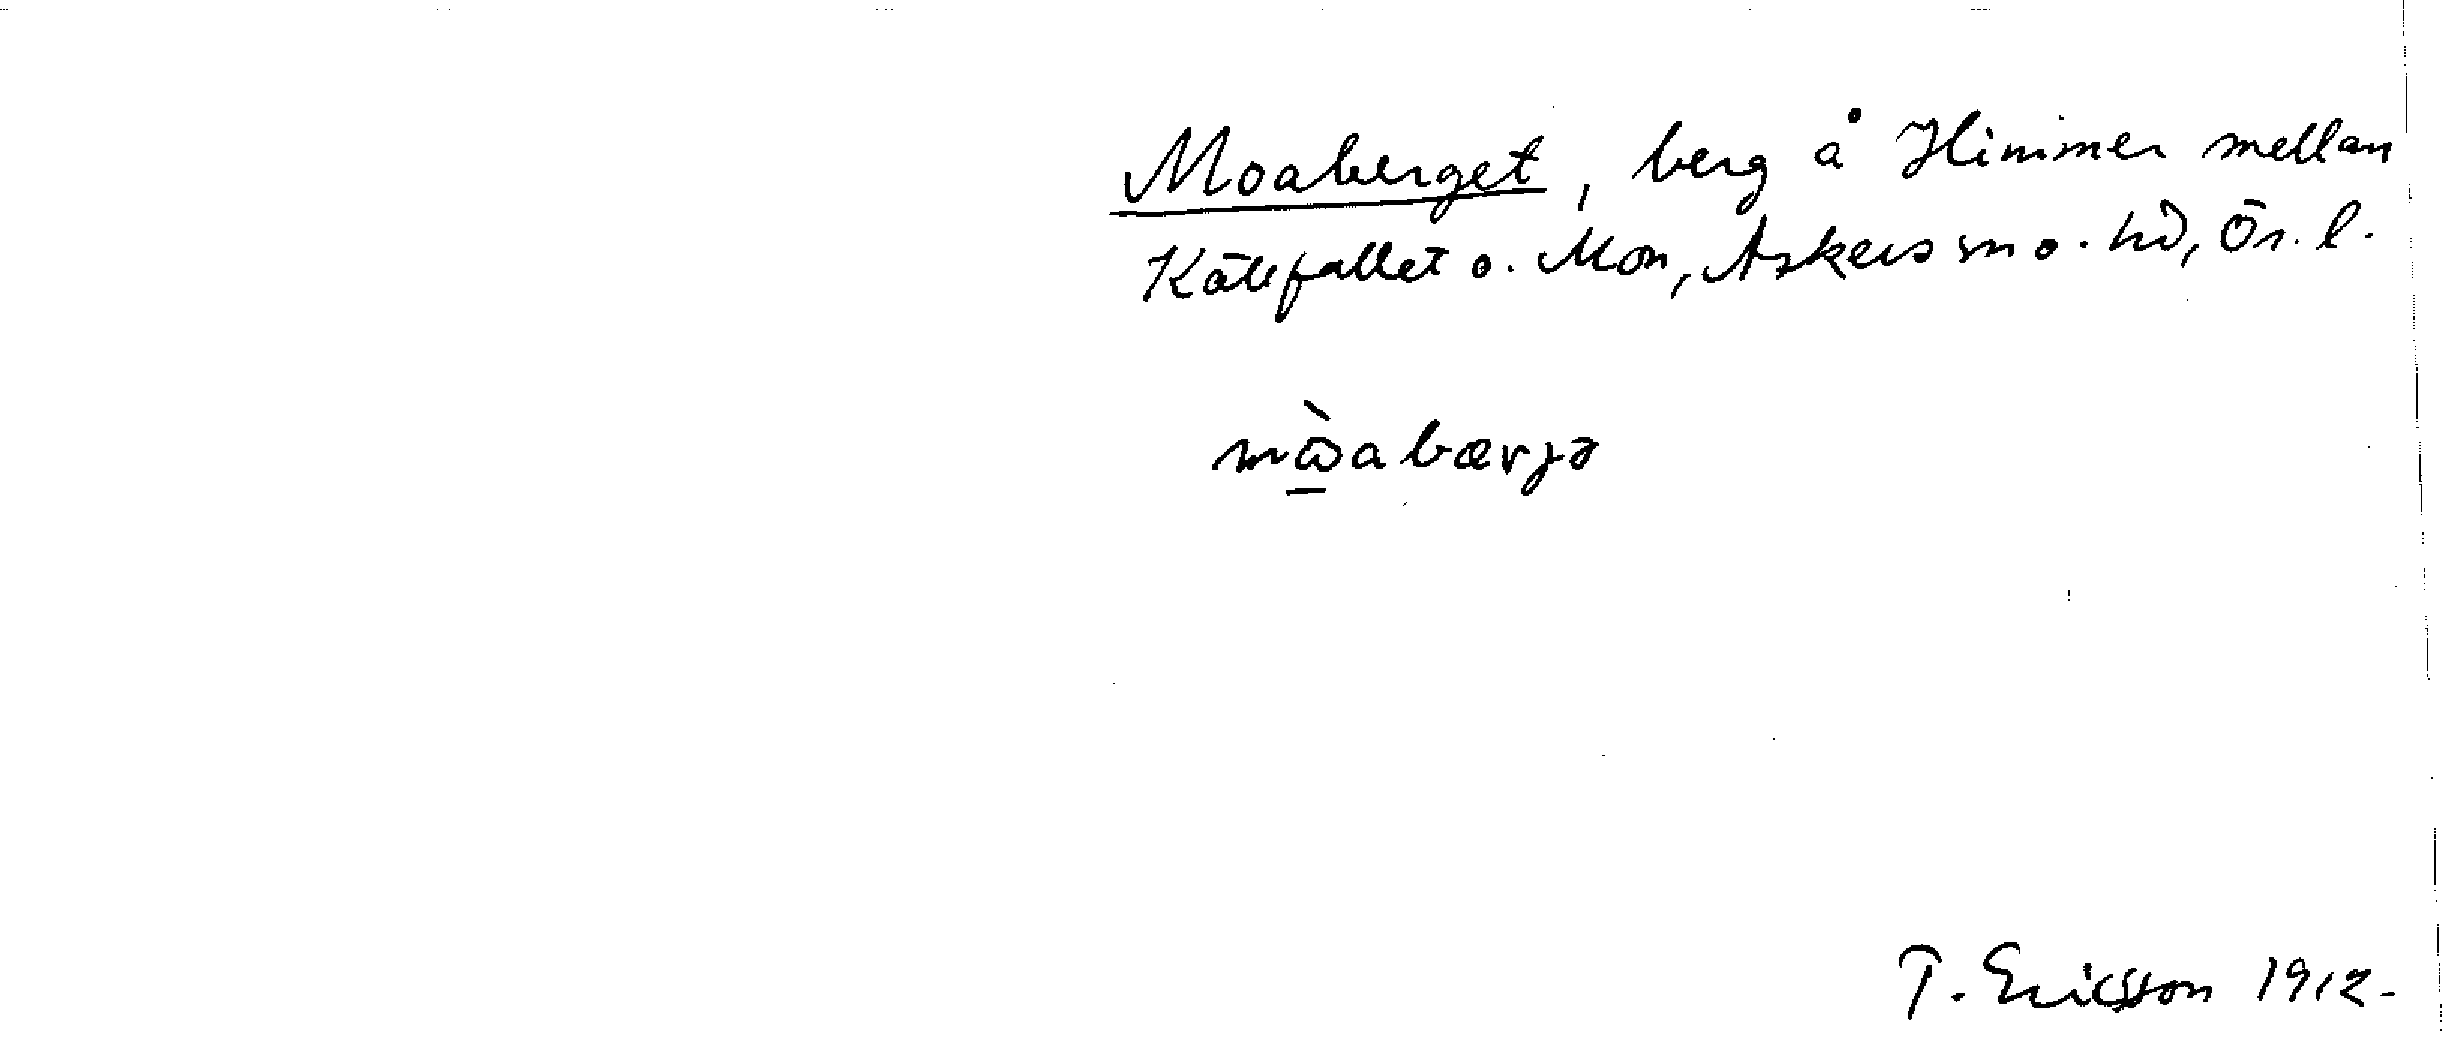 Moaberget, berg å Himmer mellan
Källfallet o. Mon, Askers sn o. hd, Ör. l.
mɷ̀abærjə
T. Ericsson 1912.